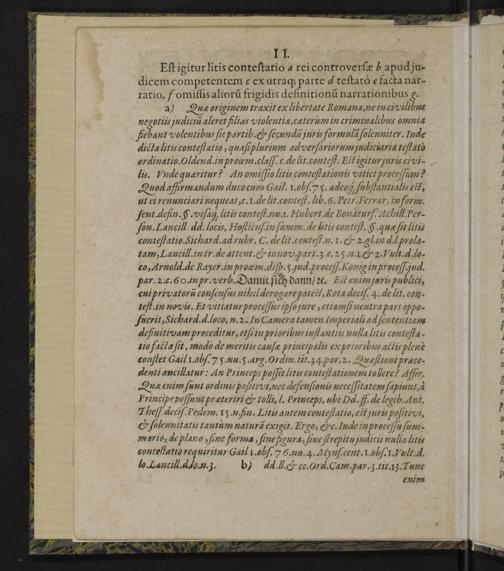 II.
Est igitur litis contestatio a rei controversæ b apud ju-
dicem competentem c ex utraq; parte d testatò e facta nar-
ratio, f omissis aliorū frigidis definitionū narrationibus g.
a) Quæ originem traxit ex libertate Romana, ne in civilibus
negotiis judiciū aleret filias violentiæ, cæterùm in criminalibus omnia
fiebant volentibus sic partib. & secundū juris formulā solenniter. Inde
dicta litis contestatio, quasi plurium adversariorum judiciaria testatò
ordinatio. Oldend. in proœm. class. c. de lit. contest. Est igitur juris civi-
lis. Vnde quæritur? An omissio litis contestationis vitiet processum?
Quod affirmandum duco cum Gail. 1. obs. 75. adeoq́; substantialis est,
ut ei renunciari nequeat, c. 1. de lit. contest. lib. 6. Petr. Ferrar. in form.
sent. defin. §. visaq́; litis contest. nu. 1. Hubert. de Bonacurs. Achill. Per-
son. Lancill. dd. locis, Hostiens. in summ. de litis contest. §. quæ sit litis
contestatio. Sichard. ad rubr. C. de lit. contest. n. 1. & 2. gl. in d. l. prola-
tam, Lancill. in tr. de attent. & innov. part. 3. c. 25. n. 1. & 2. Vult. d. lo-
co, Arnold. de Rayer. in proœm. disp. 5. jud. process. Konig in process. jud.
par. 2. c. 60. in pr. verb. Damit sich dann/ ꝛc. Est enim juris publici,
cui privatorū consensus nihil derogare potest, Rota decis. 4. de lit. con-
test. in novis. Et vitiatur processus ipso jure, etiamsi neutra pars oppo-
suerit, Sichard. d. loco, n. 2. In Camera tamen Imperiali ad sententiam
definitivam proceditur, etsi in prioribus instantiis nulla litis contesta-
tio facta sit, modo de meritis causæ principalis ex prioribus actis plenè
constet Gail 1. obs. 75. nu. 5. arg. Ordin. tit. 34. par. 2. Quæstioni præce-
denti ancillatur: An Princeps possit litis contestationem tollere? Affir.
Quæ enim sunt ordinis positivi, nec defensionis necessitatem sapiunt, à
Principe possunt præteriri & tolli, l. Princeps, ubi Dd. ff. de legib. Ant.
Thess. decis. Pedem. 15. n. fin. Litis autem contestatio, est juris positivi,
& solennitatis tantùm naturā exigit. Ergo, &c. Inde in processu sum-
mario, de plano, sine forma, sine figura, sine strepitu judicii nulla litis
contestatio requiritur Gail 1. obs. 76. nu. 4. Myns. cent. 1. obs. 1. Vult. d.
lo. Lancill. d. lo. n. 3. b) dd. ll. & cc. Ord. Cam. par. 3. tit. 13. Tunc
enim